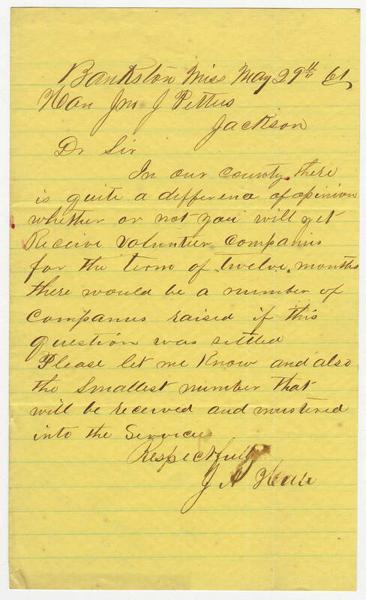 Bankston Miss May 29th 61
Hon Jno J Pettus
Jackson
Dr Sir
In our county there
is quite a difference of opinion
whether or not you will yet
Receive Volunteer Companies
for the term of twelve months
there would be a number of
Companies raised if this
question was settled
Please let me Know and also
the Smallest number that
will be received and mustered
into the Service
Respectfully
J A